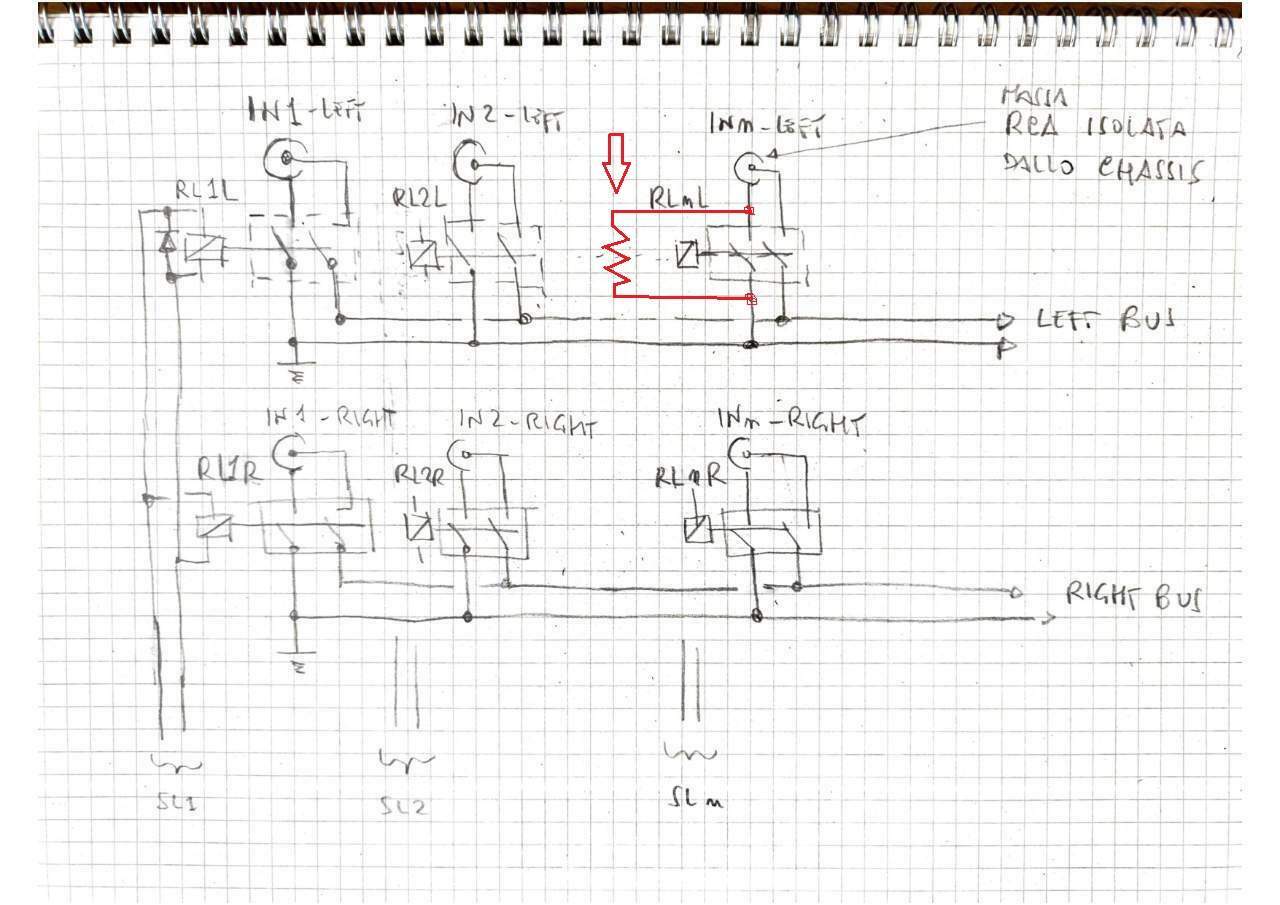 IN1-LEFT
IN2-LEFT
INn-LEFT
MASSA
RCA ISOLATA
DALLO CHASSIS
RL1L
RL2L
RLnL
LEFT BUS
IN1-RIGHT
IN2-RIGHT
INn-RIGHT
RL1R
RL2R
RLnR
RIGHT BUS
SL1
SL2
SLn